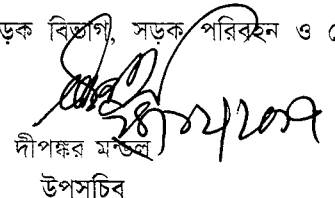 ড়ক বিভাগ, সড়ক পরিবহন ও
দীপঙ্কর মন্ডল
উপসচিব